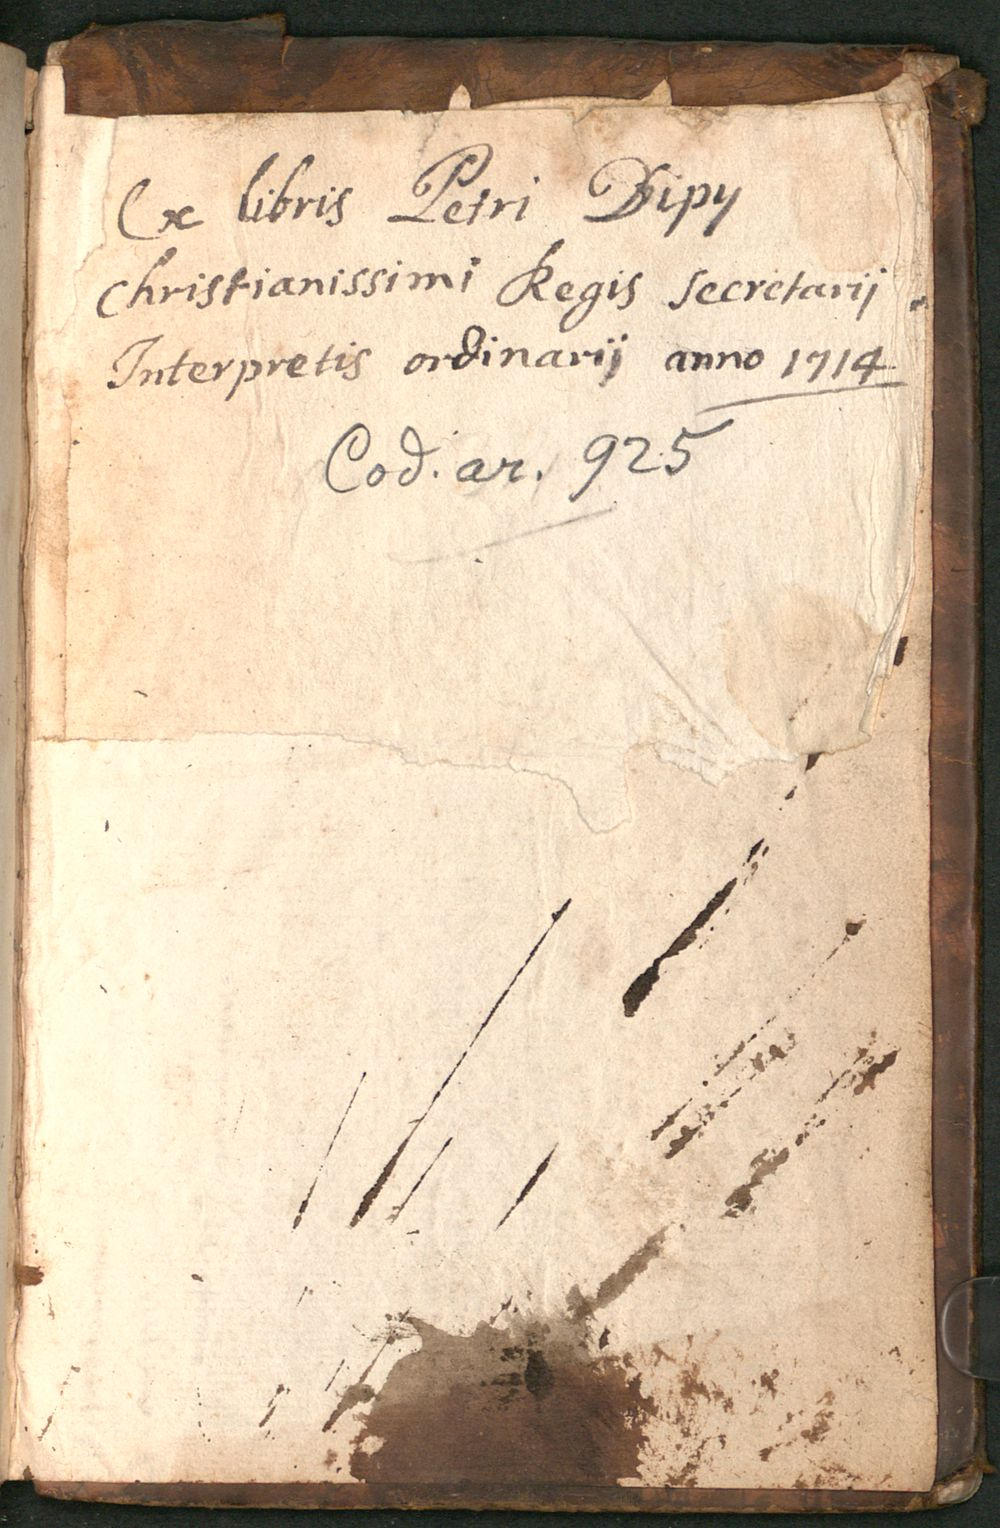 Ex libris Petri Dipy
Christianissimi Regis secretarij
Interpretis ordinarij anno 1714
Cod. ar. 925